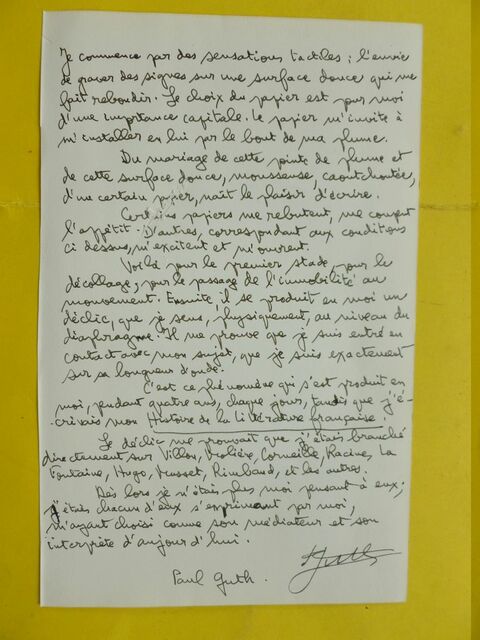 Je commence par des sensations tactiles : l'envie
de graver des signes sur une surface douce qui me
fait rebondir. Le choix du papier est pour moi
d'une importance capitale. Le papier m'invite à
m'installer en lui par le bout de ma plume.
Du mariage de cette pointe de plume et
de cette surface douce, mousseuse, caoutchoutée,
d'un certain papier, naît le plaisir d'écrire.
Certains papiers me rebutent, me coupent
l'appétit. D'autres, correspondant aux conditions
ci dessus, m'excitent et m'ouvrent.
Voilà pour le premier stade, pour le
décollage, pour le passage de l'immobilité au
mouvement. Ensuite, il se produit en moi un
déclic, que je sens, physiquement, au niveau du
diaphragme. Il me prouve que je suis entré en
contact avec mon sujet, que je suis exactement
sur sa longueur d'onde.
C'est ce phénomène qui s'est produit en
moi, pendant quatre ans, chaque jour, tandis que j'é-
crivais mon Histoire de la littérature française.
Le déclic me prouvait que j'étais branché
directement sur Villon, Molière, Corneille, Racine, La
Fontaine, Hugo, Musset, Rimbaud, et les autres.
Dès lors je n'étais plus moi pensant à eux,
j'étais chacun d'eux s'exprimant par moi,
m'ayant choisi comme son médiateur et son
interprète d'aujourd'hui.
Guth
Paul Guth.